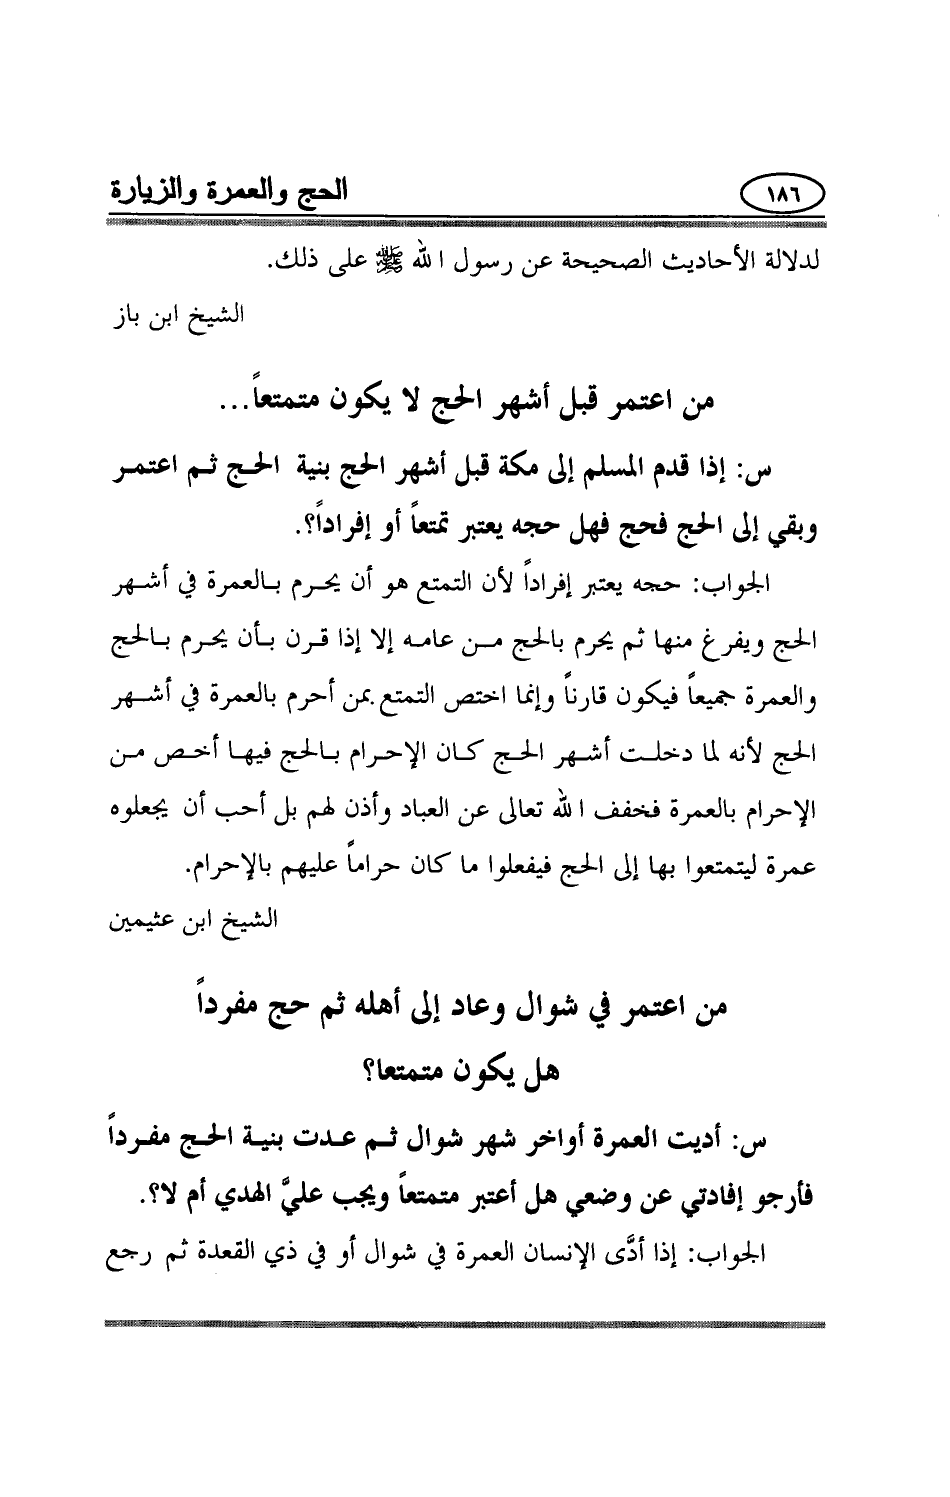 ١٨٦ الحج والعمرة والزيارة
لدلالة الأحاديث الصحيحة عن رسول الله ﷺ على ذلك.
الشيخ ابن باز
من اعتمر قبل أشهر الحج لا يكون متمتعاً...
س: إذا قدم المسلم إلى مكة قبل أشهر الحج بنية الحج ثم اعتمر
وبقي إلى الحج فحج فهل حجه يعتبر تمتعاً أو إفراداً؟.
الجواب: حجه يعتبر إفراداً لأن التمتع هو أن يحرم بالعمرة في أشهر
الحج ويفرغ منها ثم يحرم بالحج من عامه إلا إذا قرن بأن يحرم بالحج
والعمرة جميعاً فيكون قارناً وإنما اختص التمتع بمن أحرم بالعمرة في أشهر
الحج لأنه لما دخلت أشهر الحج كان الإحرام بالحج فيها أخص من
الإحرام بالعمرة فخفف الله تعالى عن العباد وأذن لهم بل أحب أن يجعلوه
عمرة ليتمتعوا بها إلى الحج فيفعلوا ما كان حراماً عليهم بالإحرام.
الشيخ ابن عثيمين
من اعتمر في شوال وعاد إلى أهله ثم حج مفرداً
هل يكون متمتعا؟
س: أديت العمرة أواخر شهر شوال ثم عدت بنية الحج مفرداً
فأرجو إفادتي عن وضعي هل أعتبر متمتعاً ويجب عليَّ الهدي أم لا؟.
الجواب: إذا أدَّى الإنسان العمرة في شوال أو في ذي القعدة ثم رجع